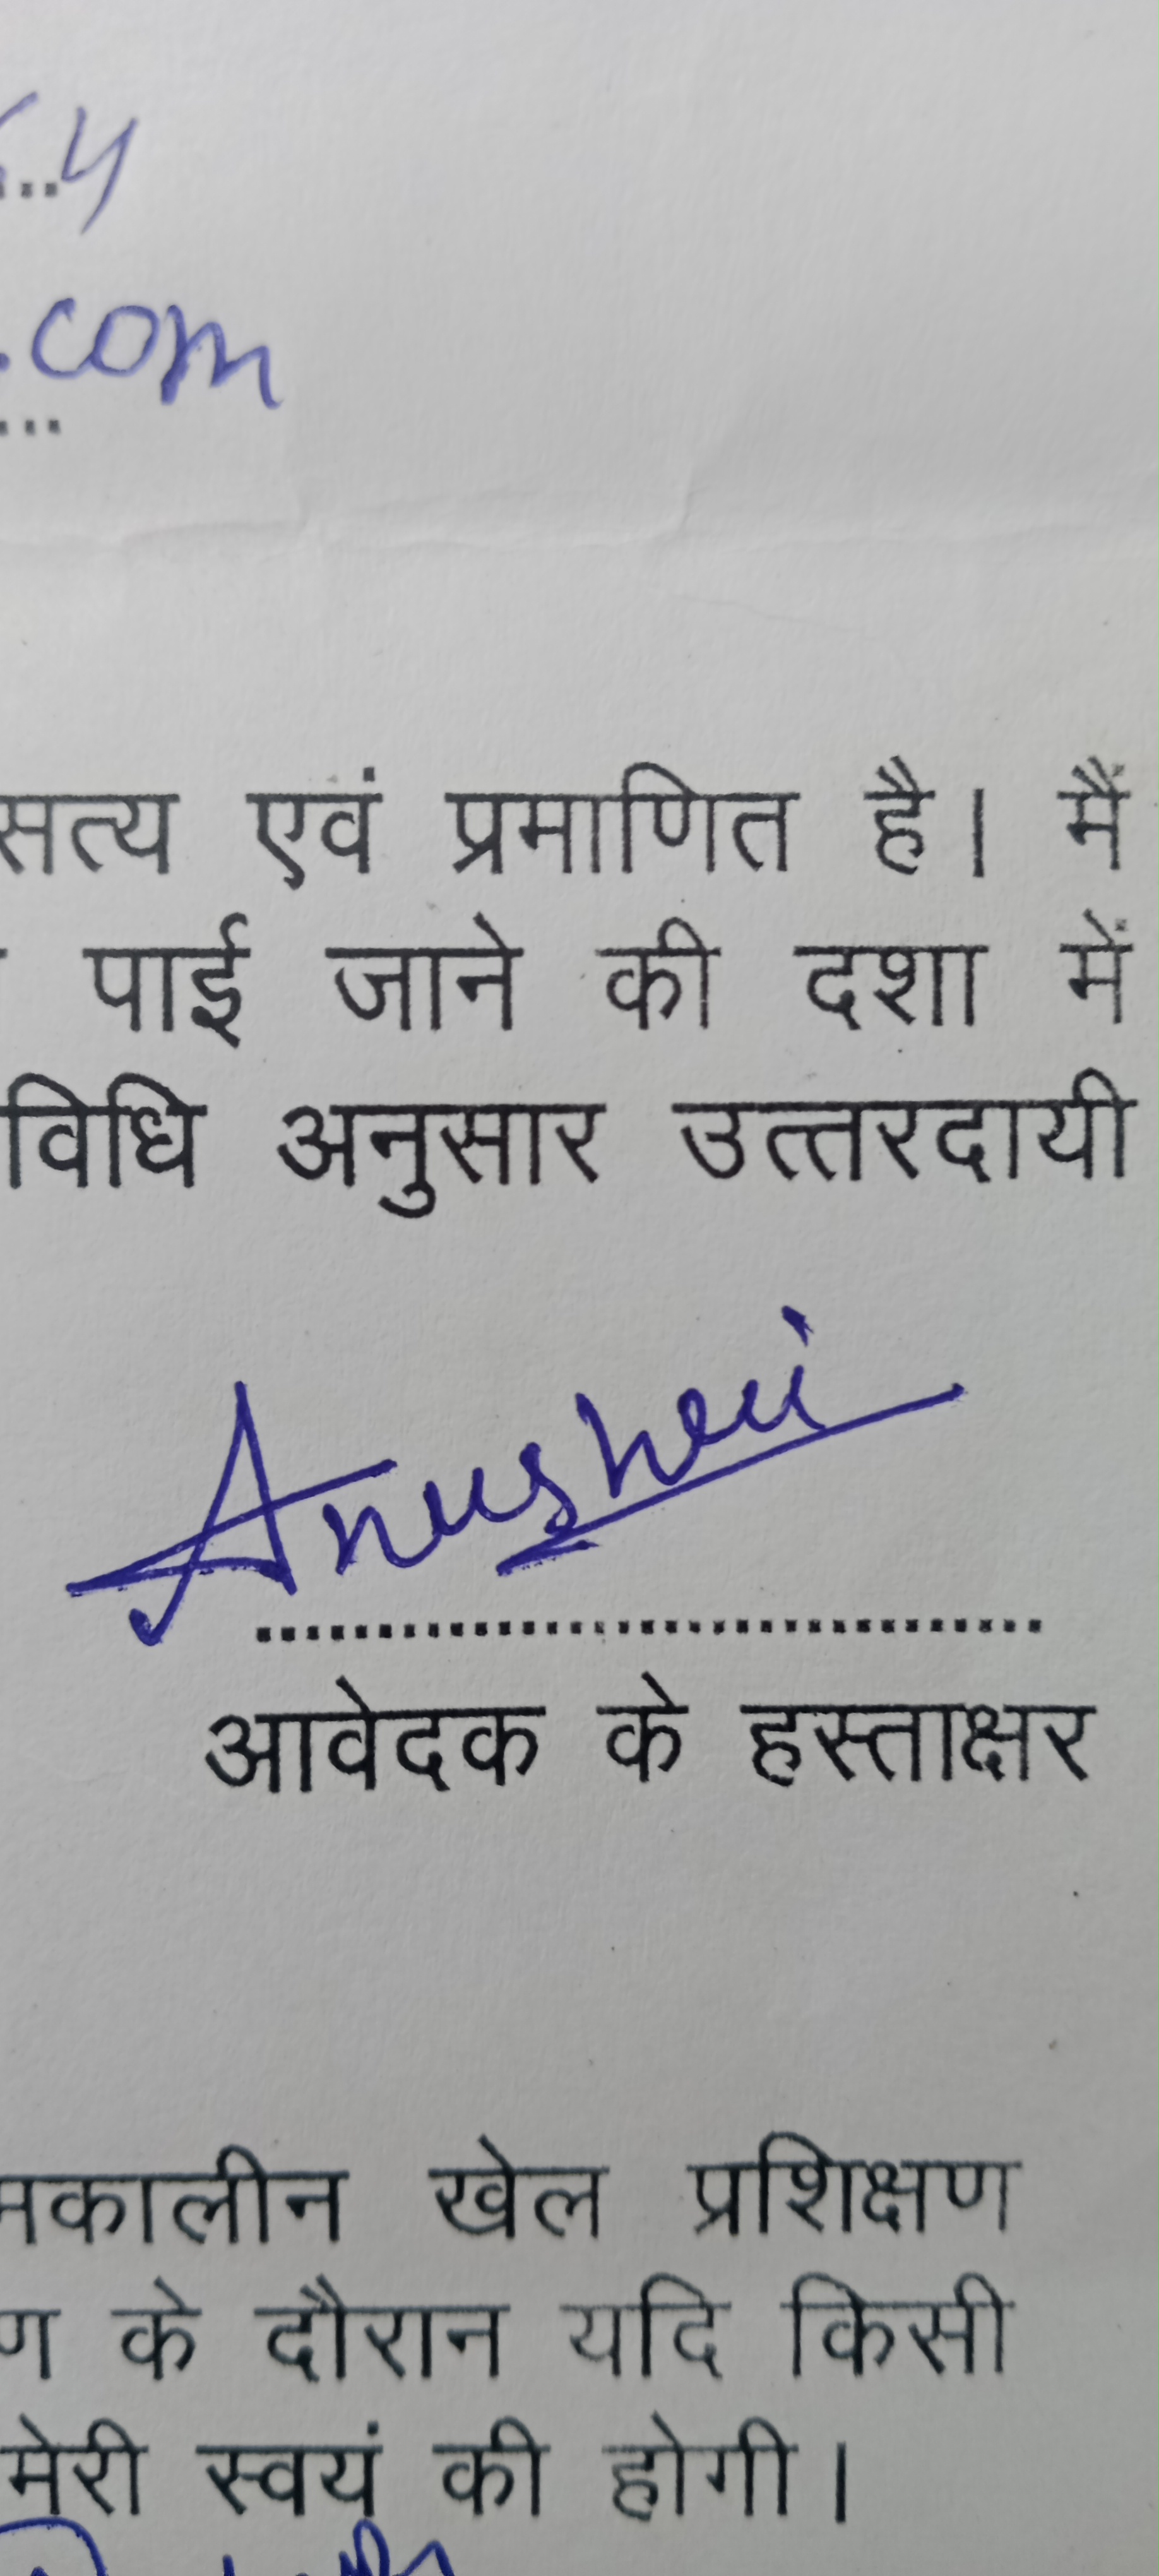 ..4
.com
...
सत्य एवं प्रमाणित है। मैं
पाई जाने की दशा में
विधि अनुसार उत्तरदायी
Anushri
................................
आवेदक के हस्ताक्षर
मकालीन खेल प्रशिक्षण
ण के दौरान यदि किसी
मेरी स्वयं की होगी।